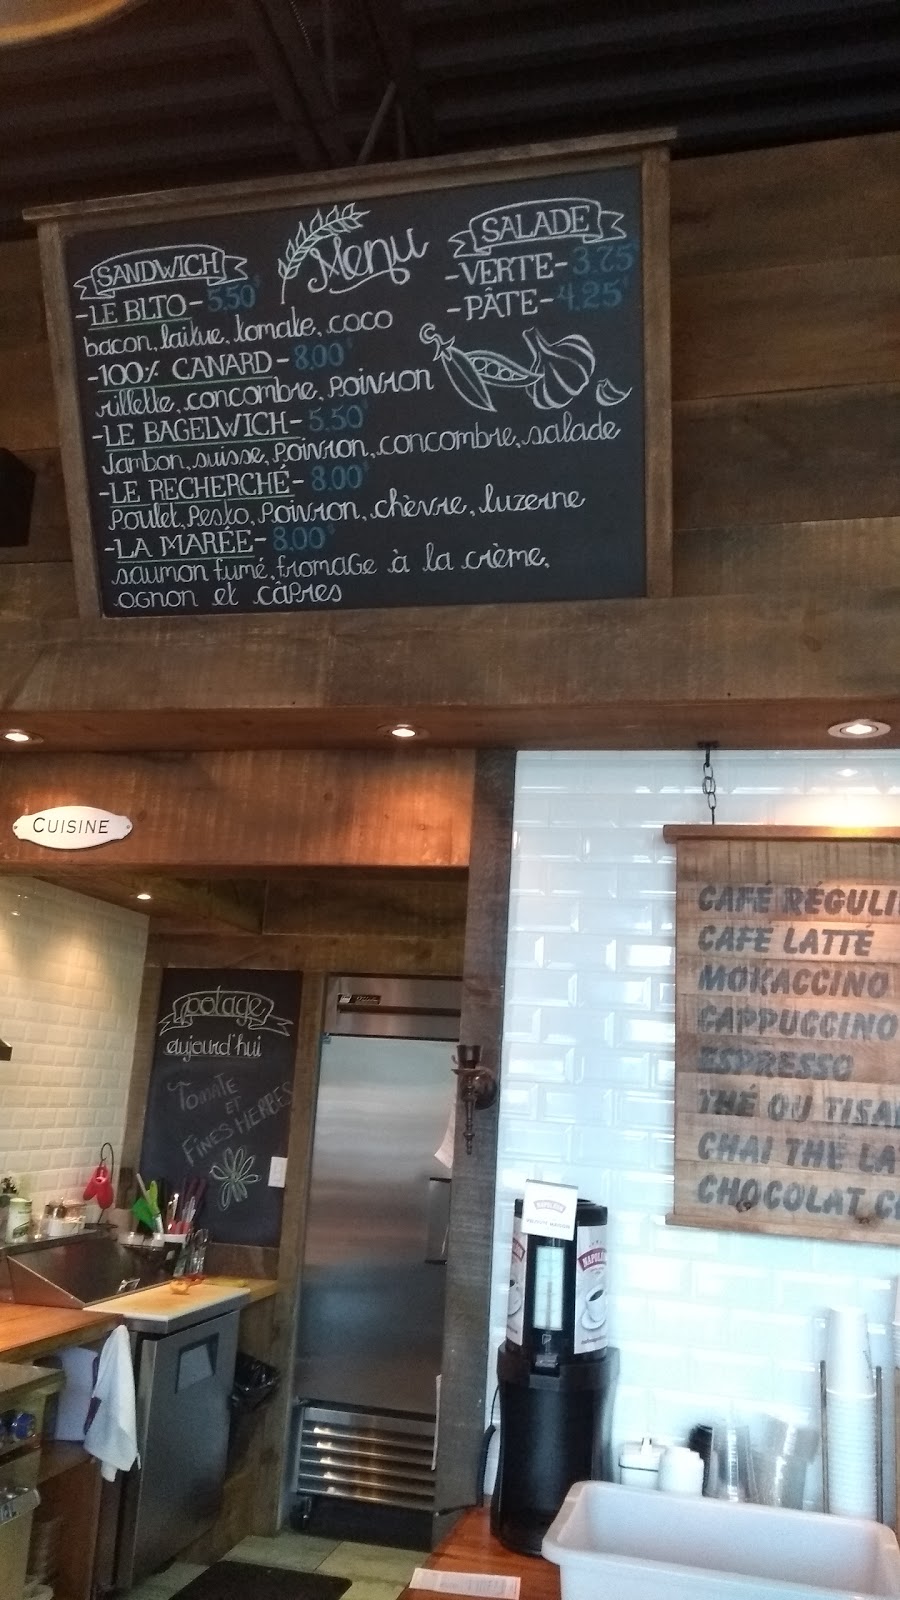 Menu
SANDWICH
-LE BLTO-5.50$
bacon, laitue, tomate, coco
-100% CANARD-8.00$
rillette, concombre, poivron
-LE BAGELWICH-5.50$
Jambon, suisse, poivron, concombre, salade
-LE RECHERCHÉ-8.00$
Poulet, Pesto, Poivron, chèvre, luzerne
-LA MARÉE-8.00$
saumon fumé, fromage à la crème,
ognon et câpres
SALADE
-VERTE-3.75$
-PÂTE-4.25$
CUISINE
potage
aujourd'hui
TOMATE
ET
FINES HERBES
CAFÉ RÉGULI
CAFÉ LATTÉ
MOKACCINO
CAPPUCCINO
ESPRESSO
THÉ OU TISA
CHAI THÉ LA
CHOCOLAT C
NAPOLÉON